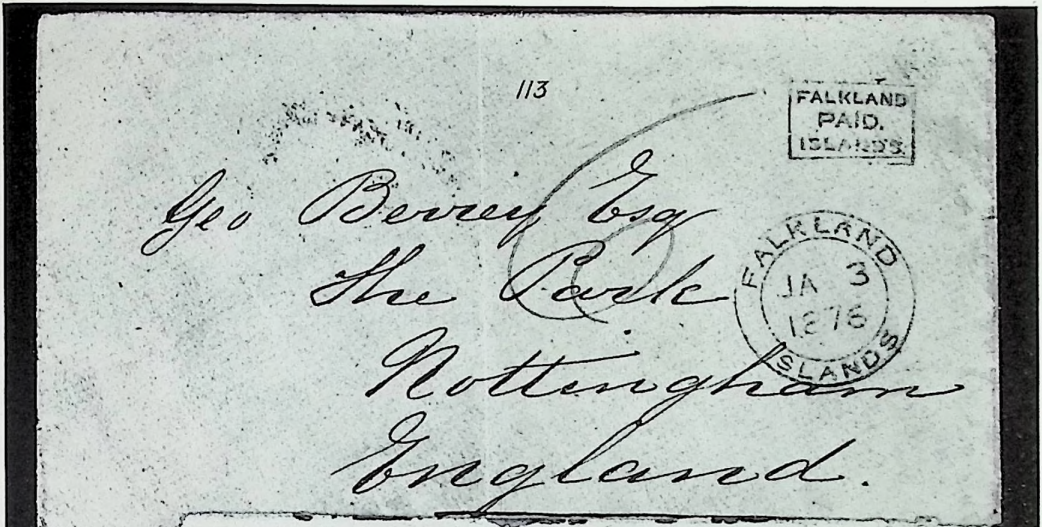 113
FALKLAND
PAID.
ISLANDS.
Geo Berrey Esq
The Park
Nottingham
England.
6
FALKLAND
JA 3
1876
ISLANDS